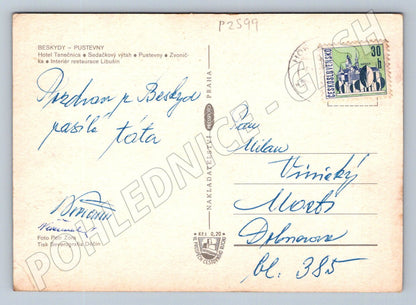 P2599
BESKYDY - PUSTEVNY
Hotel Tanečnica • Sedačkový výtah • Pustevny • Zvonič-
ka • Interiér restaurace Libušín
Pozdrav z Beskyd
posílá táta
Foto Petr Zora
NAKLADATELSTVÍ ORBIS PRAHA
Kčs 0,20
ČESKOSLOVENSKO
30 h
Pan
Milan
Vinický
Mostě
Dobnerova
bl. 385
POHLEDNICE-